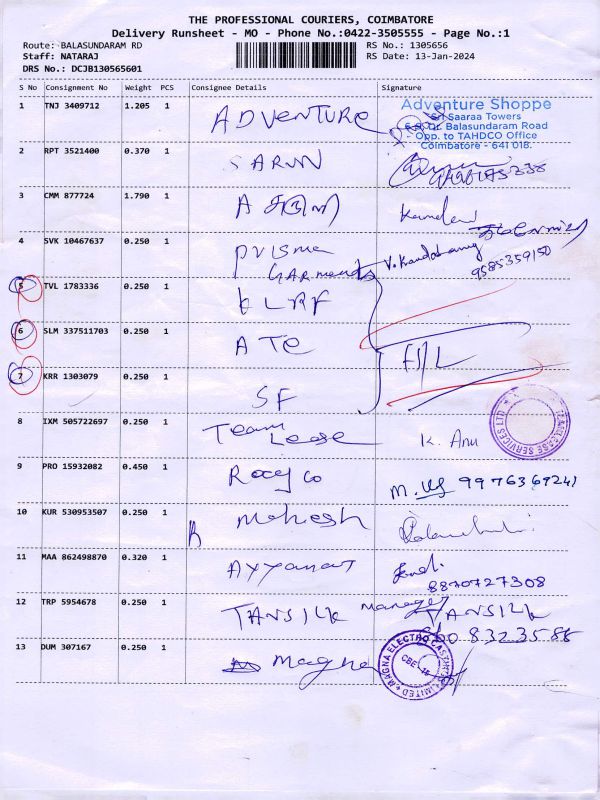 THE PROFESSIONAL COURIERS, COIMBATORE
Delivery Runsheet - MO - Phone No.:0422-3505555 - Page No.:1
Route: BALASUNDARAM RD
Staff: NATARAJ
DRS No.: DCJB130565601
RS No.: 1305656
RS Date: 13-Jan-2024
S No Consignment No Weight PCS Consignee Details Signature
1 TNJ 3409712 1.205 1 ADVENTURE
Adventure Shoppe
Sri Saaraa Towers
Dr. Balasundaram Road
Opp. to TAHDCO Office
Coimbatore - 641 018.
2 RPT 3521400 0.370 1 SARUN
3 CMM 877724 1.790 1
4 SVK 10467637 0.250 1 Prisma Garments V. Kandasamy
9585359150
5 TVL 1783336 0.250 1 KLRF
6 SLM 337511703 0.250 1 ATE
7 KRR 1303079 0.250 1 SF
8 IXM 505722697 0.250 1 Team Lease K. Anu
TEAMLEASE SERVICES LTD
9 PRO 15932082 0.450 1 9976369241
10 KUR 530953507 0.250 1 Mahesh
11 MAA 862498870 0.320 1 Ayyanar
8870727308
12 TRP 5954678 0.250 1 TANSILK Manager TANSILK
13 DUM 307167 0.250 1 Magna
MAGNA ELECTRO CASTINGS LIMITED